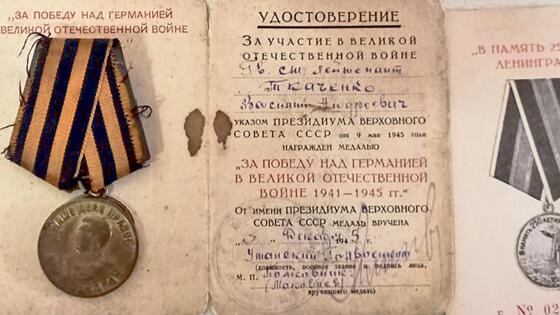 „ЗА ПОБЕДУ НАД ГЕРМАНИЕЙ
ВЕЛИКОЙ ОТЕЧЕСТВЕННОЙ ВОЙНЕ
НАШЕ ДЕЛО ПРАВОЕ
УДОСТОВЕРЕНИЕ
ЗА УЧАСТИЕ В ВЕЛИКОЙ
ОТЕЧЕСТВЕННОЙ ВОЙНЕ
Гв. ст. лейтенант
Ткаченко
Василий Андреевич
УКАЗОМ ПРЕЗИДИУМА ВЕРХОВНОГО
СОВЕТА СССР от 9 мая 1945 года
НАГРАЖДЕН МЕДАЛЬЮ
"ЗА ПОБЕДУ НАД ГЕРМАНИЕЙ
В ВЕЛИКОЙ ОТЕЧЕСТВЕННОЙ
ВОЙНЕ 1941—1945 гг."
От имени ПРЕЗИДИУМА ВЕРХОВНОГО
СОВЕТА СССР МЕДАЛЬ ВРУЧЕНА
Декабр 1945 г.
(должность, военное звание и подпись лица,
М. П. Полковник
вручившего медаль)
„В ПАМЯТЬ 25
ЛЕНИНГРА
г. № 02